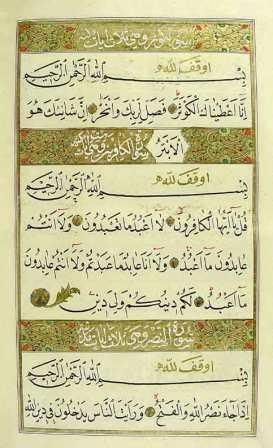 سورة الكوثر وهي ثلاث آيات
أوقف لله
بِسْمِ اللهِ الرَّحْمٰنِ الرَّحِيمِ
إِنَّا أَعْطَيْنَاكَ الْكَوْثَرَ فَصَلِّ لِرَبِّكَ وَانْحَرْ إِنَّ شَانِئَكَ هُوَ
الْأَبْتَرُ سورة الكافرون وهي ست آيات
أوقف لله
بِسْمِ اللهِ الرَّحْمٰنِ الرَّحِيمِ
قُلْ يَا أَيُّهَا الْكَافِرُونَ لَا أَعْبُدُ مَا تَعْبُدُونَ وَلَا أَنْتُمْ
عَابِدُونَ مَا أَعْبُدُ وَلَا أَنَا عَابِدٌ مَا عَبَدْتُمْ وَلَا أَنْتُمْ عَابِدُونَ
مَا أَعْبُدُ لَكُمْ دِينُكُمْ وَلِيَ دِينِ
سورة النصر وهي ثلاث آيات
أوقف لله
بِسْمِ اللهِ الرَّحْمٰنِ الرَّحِيمِ
إِذَا جَاءَ نَصْرُ اللهِ وَالْفَتْحُ وَرَأَيْتَ النَّاسَ يَدْخُلُونَ فِي دِينِ اللهِ